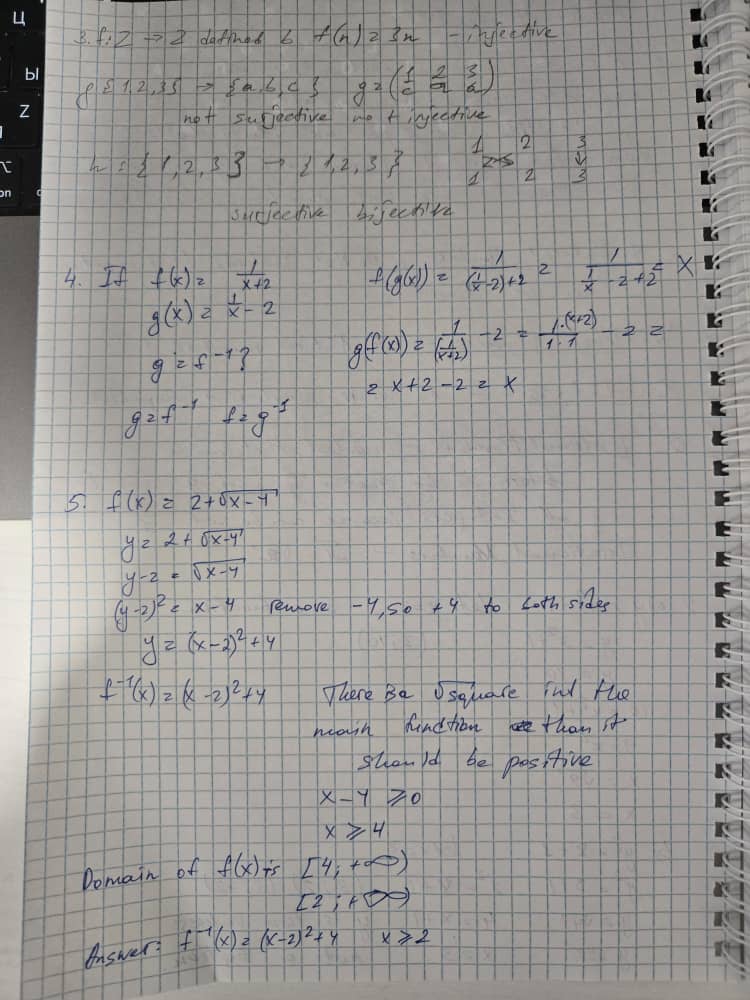 Ц
Ы
Z
⌥
3. f: Z → Z defined b f(n) = 3n - injective
g {1,2,3} → {a,b,c} g = (1 2 3
c a a)
not surjective not injective
h = {1,2,3} → {1,2,3} 1 2 3
1 2 3
surjective bijective
4. If f(x) = 1/(x+2) f(g(x)) = 1/((1/x - 2)+2) = 1/(1/x - 2 + 2) = x
g(x) = 1/x - 2
g = f⁻¹? g(f(x)) = 1/(1/(x+2)) - 2 = 1·(x+2)/(1·1) - 2 =
= x+2-2 = x
g = f⁻¹ f = g⁻¹
5. f(x) = 2+√(x-4)
y = 2+√(x-4)
y-2 = √(x-4)
(y-2)² = x-4 remove -4, so +4 to both sides
y = (x-2)²+4
f⁻¹(x) = (x-2)²+4 There is a √square int the
main function than it
should be positive
x-4 ⩾ 0
x ⩾ 4
Domain of f(x) is [4; +∞)
[2; +∞)
Answer: f⁻¹(x) = (x-2)²+4 x ⩾ 2